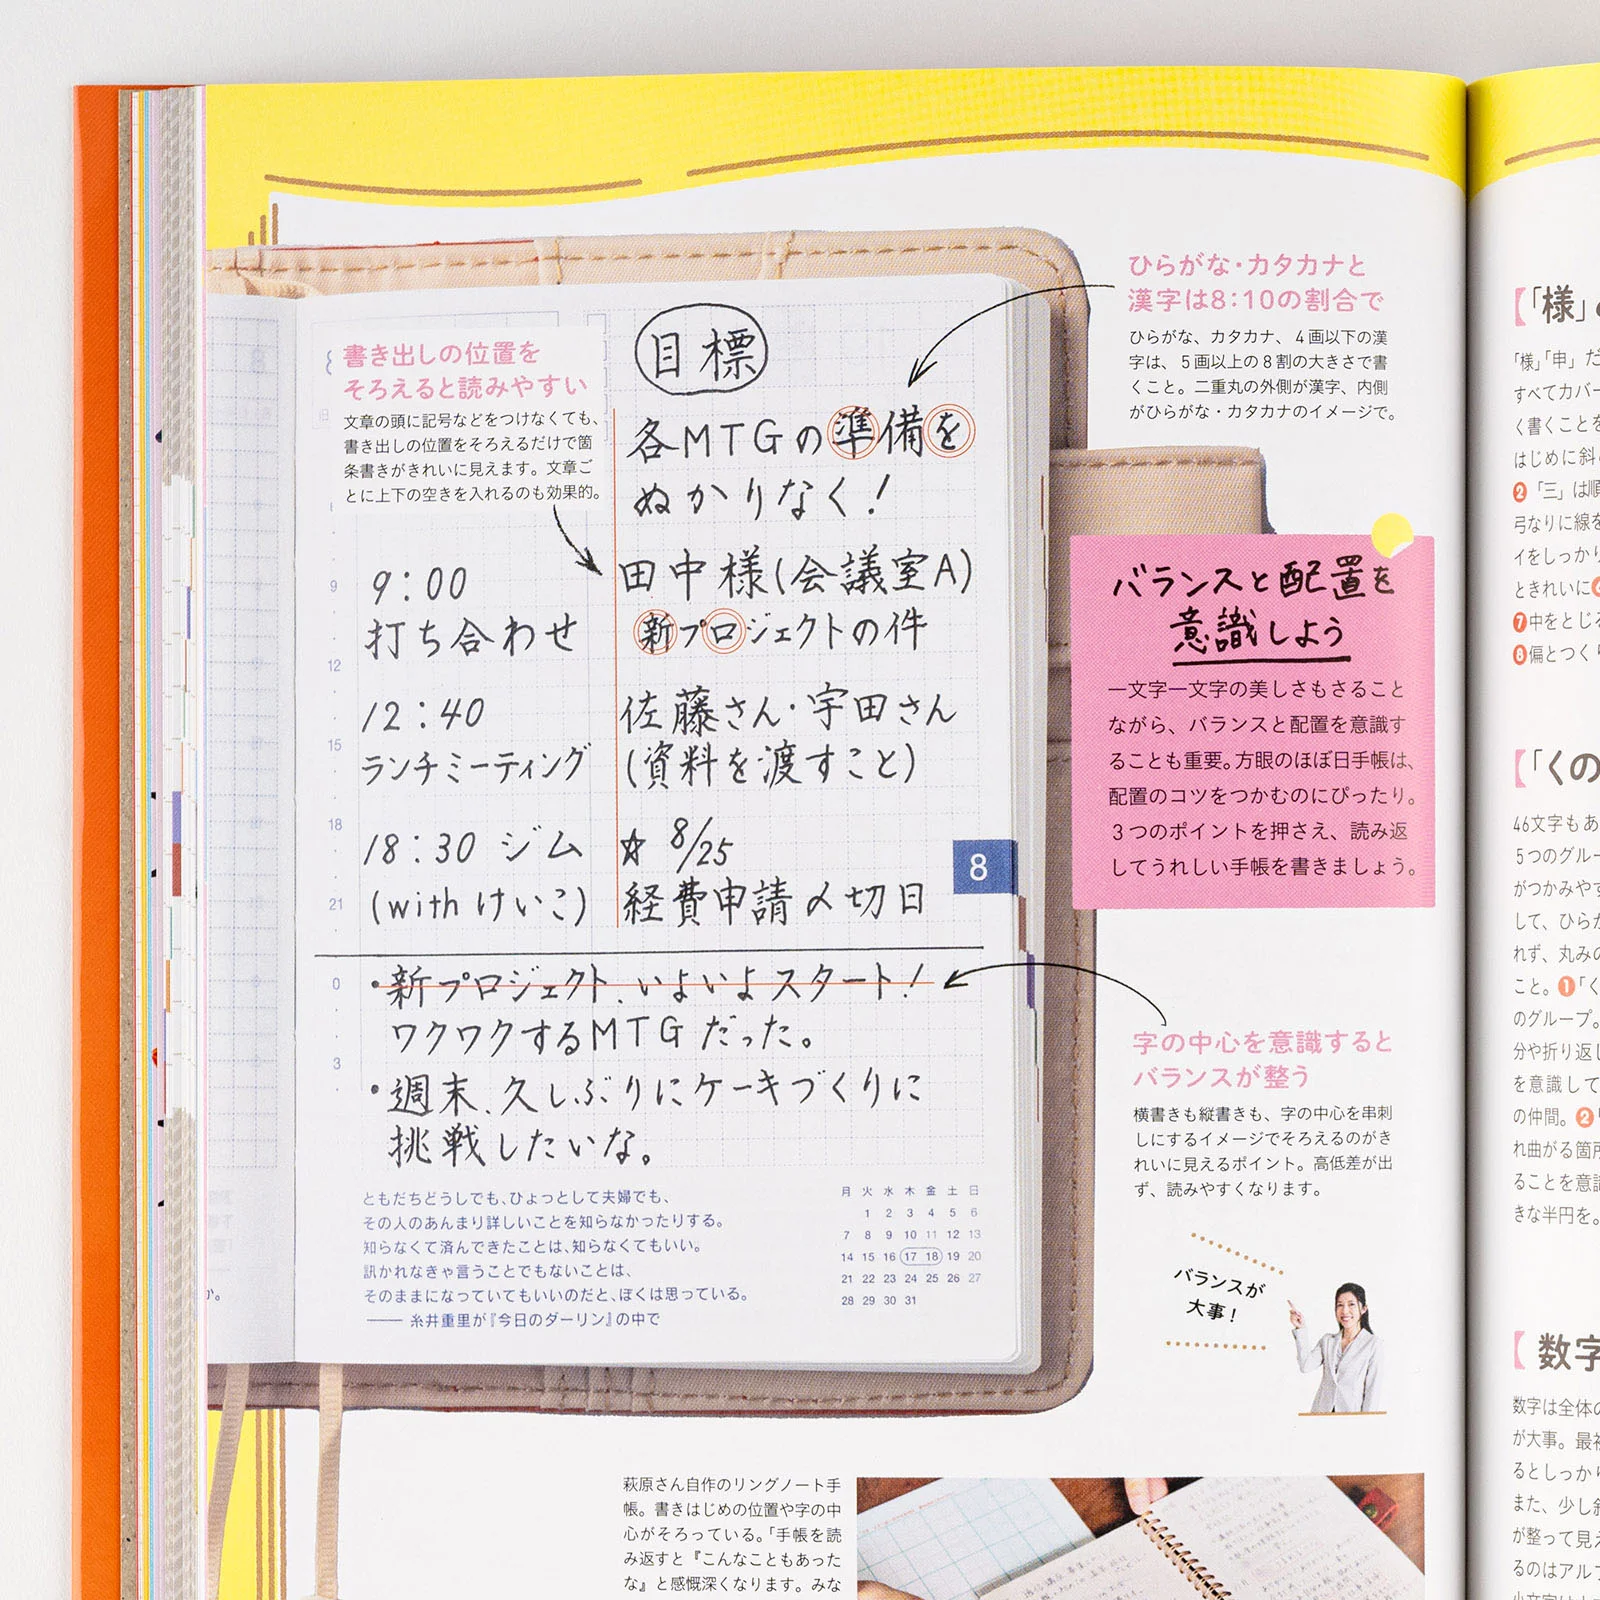 書き出しの位置を
そろえると読みやすい
文章の頭に記号などをつけなくても、
書き出しの位置をそろえるだけで箇
条書きがきれいに見えます。文章ご
とに上下の空きを入れるのも効果的。
目標
各MTGの準備を
ぬかりなく!
9:00
打ち合わせ
田中様(会議室A)
新プロジェクトの件
12:40
ランチミーティング
佐藤さん・宇田さん
(資料を渡すこと)
18:30 ジム
(with けいこ)
☆ 8/25
経費申請〆切日
9
12
15
18
21
0
3
8
•新プロジェクト、いよいよスタート!
ワクワクするMTGだった。
•週末、久しぶりにケーキづくりに
挑戦したいな。
ともだちどうしでも、ひょっとして夫婦でも、
その人のあんまり詳しいことを知らなかったりする。
知らなくて済んできたことは、知らなくてもいい。
訊かれなきゃ言うことでもないことは、
そのままになっていてもいいのだと、ぼくは思っている。
—— 糸井重里が『今日のダーリン』の中で
月 火 水 木 金 土 日
1 2 3 4 5 6
7 8 9 10 11 12 13
14 15 16 17 18 19 20
21 22 23 24 25 26 27
28 29 30 31
か。
ひらがな・カタカナと
漢字は8:10の割合で
ひらがな、カタカナ、4画以下の漢
字は、5画以上の8割の大きさで書
くこと。二重丸の外側が漢字、内側
がひらがな・カタカナのイメージで。
バランスと配置を
意識しよう
一文字一文字の美しさもさること
ながら、バランスと配置を意識す
ることも重要。方眼のほぼ日手帳は、
配置のコツをつかむのにぴったり。
3つのポイントを押さえ、読み返
してうれしい手帳を書きましょう。
字の中心を意識すると
バランスが整う
横書きも縦書きも、字の中心を串刺
しにするイメージでそろえるのがき
れいに見えるポイント。高低差が出
ず、読みやすくなります。
バランスが
大事!
萩原さん自作のリングノート手
帳。書きはじめの位置や字の中
心がそろっている。「手帳を読
み返すと『こんなこともあった
な』と感慨深くなります。みな
【「様」
「様」「申」だ
すべてカバー
く書くことを
はじめに斜
❷「三」は順
弓なりに線を
イをしっかり
ときれいに
❼中をとじる
❽偏とつくり
【「くの
46文字もあ
5つのグルー
がつかみやす
して、ひらが
れず、丸みの
こと。❶「く
のグループ。
分や折り返し
を意識して
の仲間。❷
れ曲がる箇所
ることを意識
きな半円を。
【数字
数字は全体の
が大事。最初
るとしっかり
また、少し斜
が整って見え
るのはアルフ